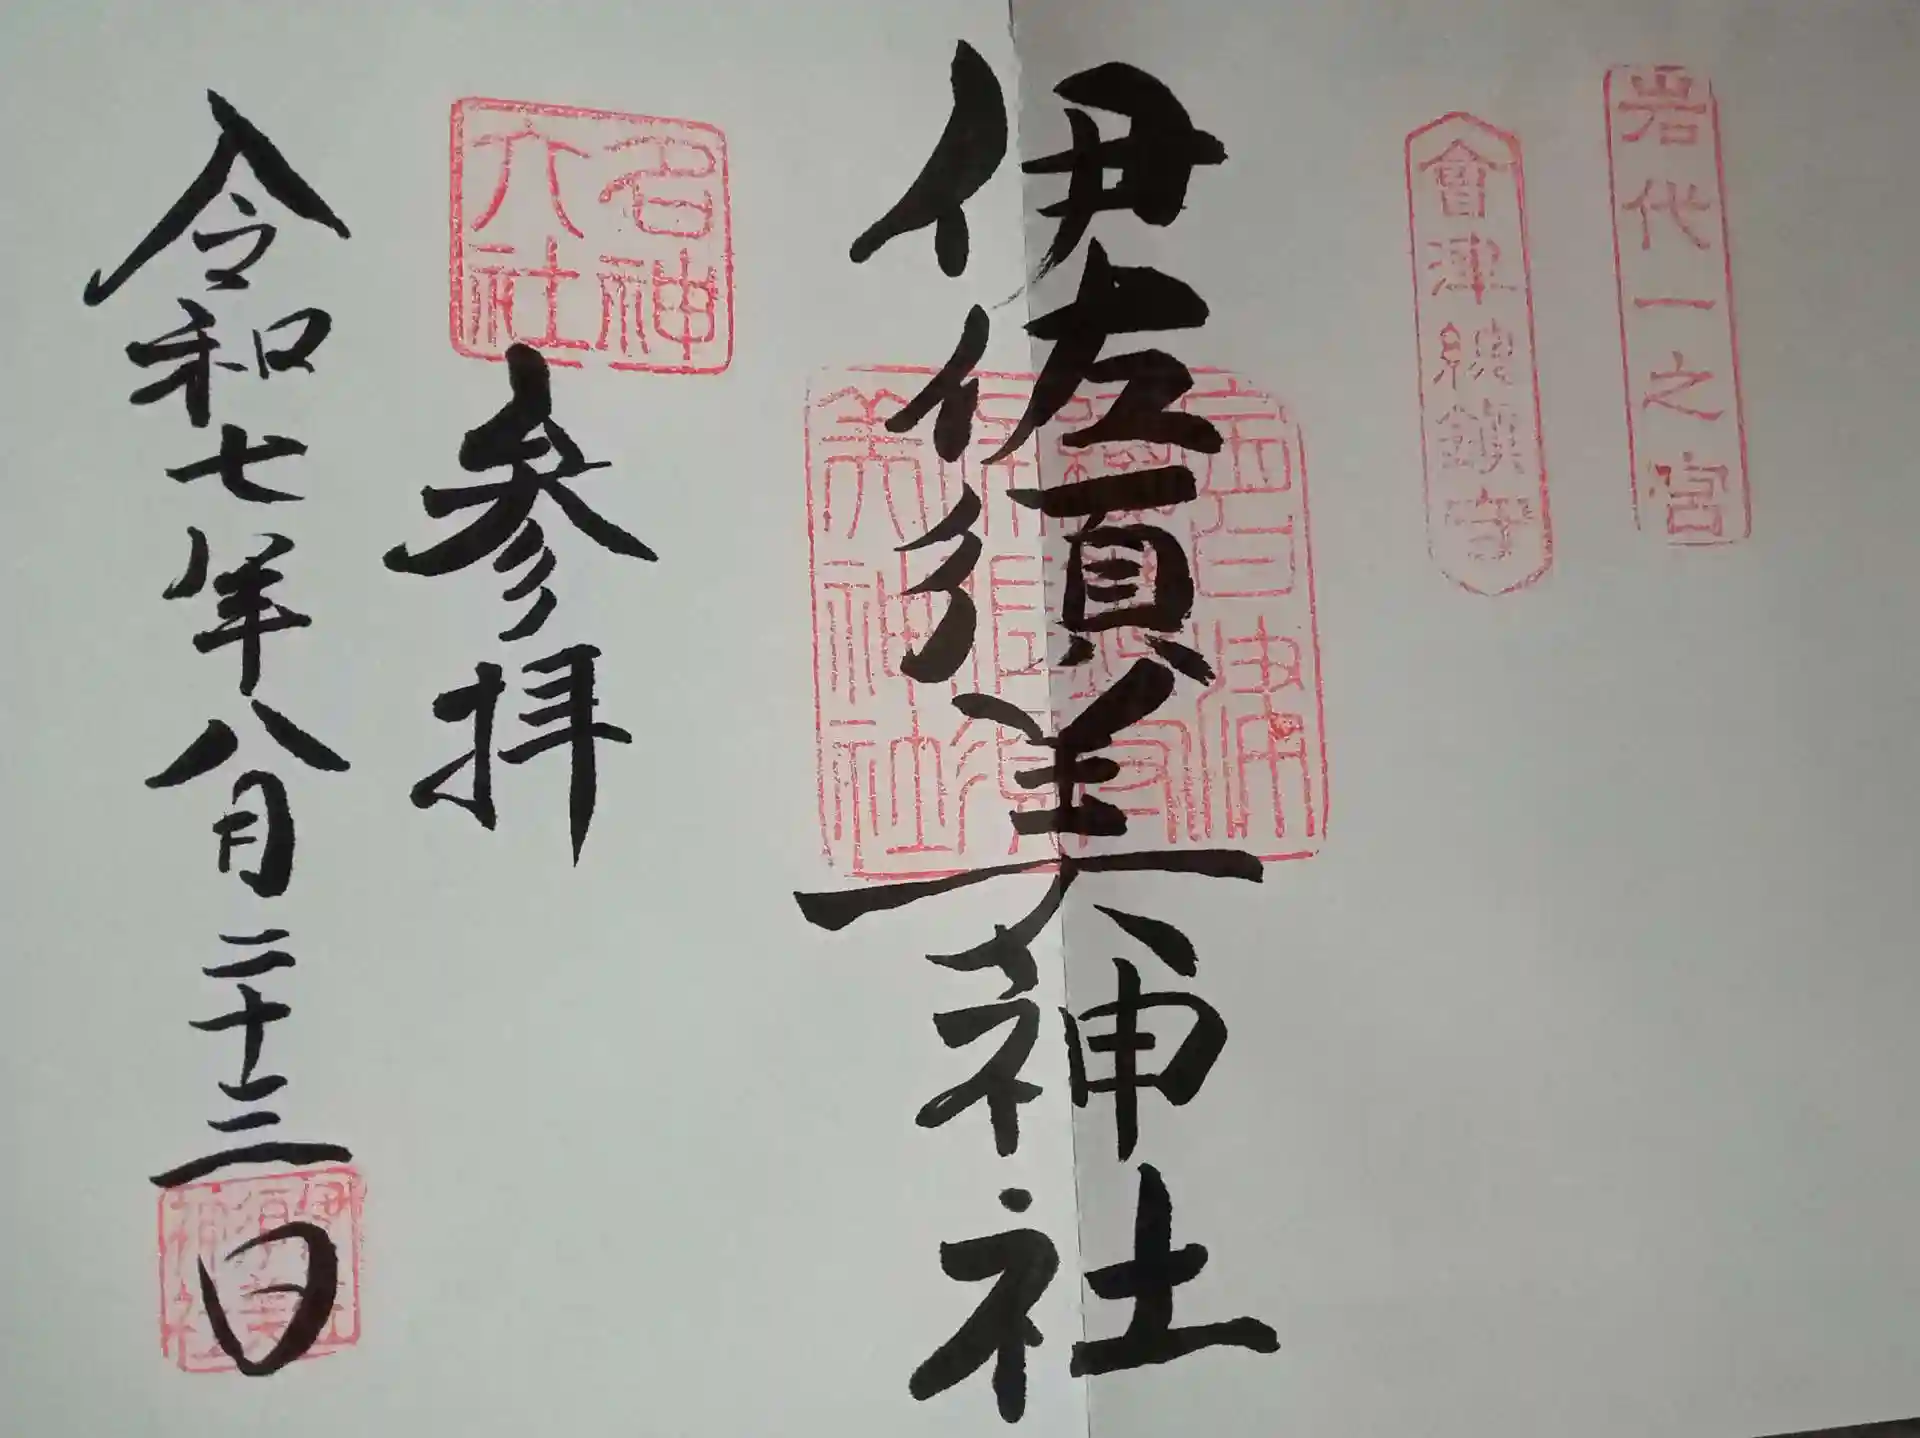 岩代一之宮
會津總鎮守
伊佐須美神社
名神
大社
参拝
令和七年八月二十三日
伊佐
須美
神社